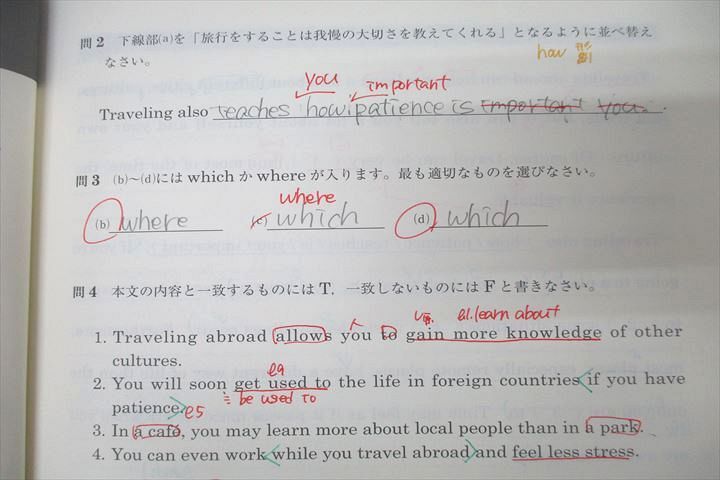 問2 下線部(a)を「旅行をすることは我慢の大切さを教えてくれる」となるように並べ替え
なさい。
how
you important
Traveling also teaches how patience is important you.
問3 (b)~(d)には which か where が入ります。最も適切なものを選びなさい。
where
(b) where (c) which (d) which
問4 本文の内容と一致するものには T, 一致しないものには F と書きなさい。
el. learn about
1. Traveling abroad allows you to gain more knowledge of other
cultures.
2. You will soon get used to the life in foreign countries if you have
≒ be used to
patience. e5
3. In a café, you may learn more about local people than in a park.
4. You can even work while you travel abroad and feel less stress.